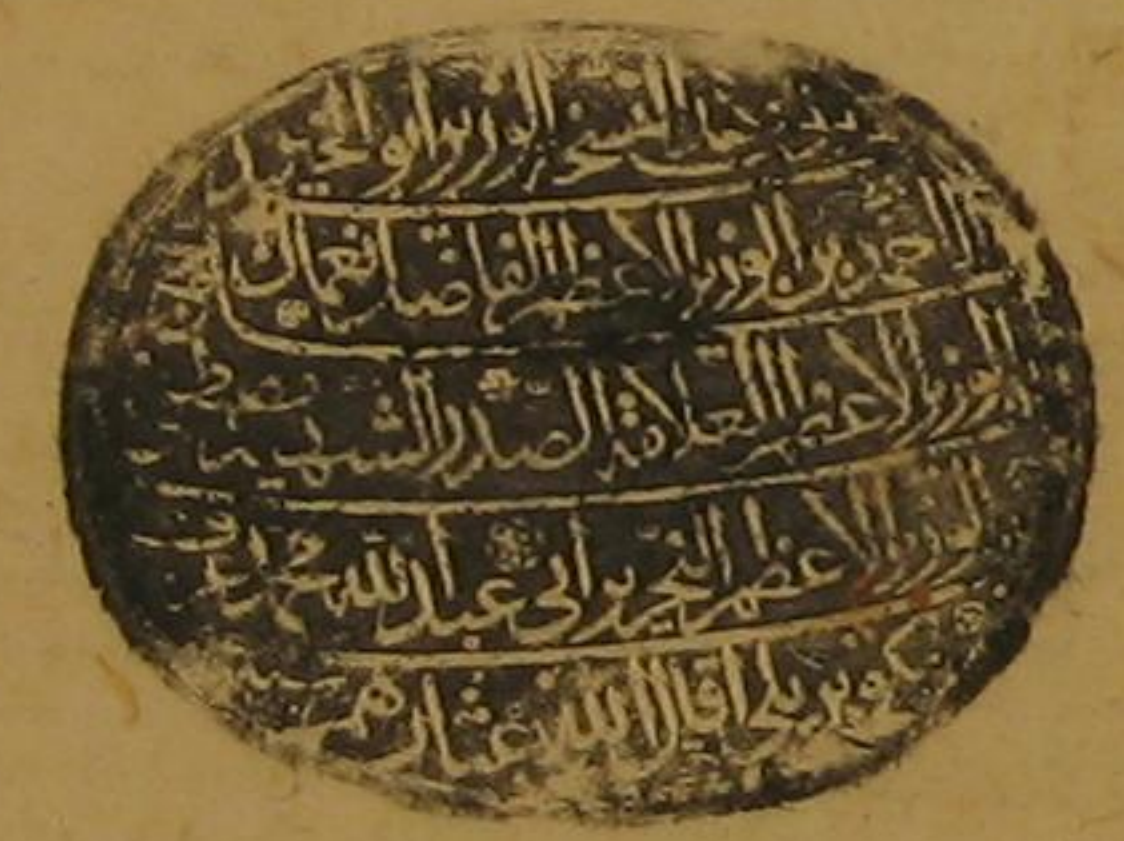 الوزير ابو الخير
احمد بن الوزير الاعظم الفاضل نعمان بن
الوزير الاعظم العلامة الصدر الشهيد مصطفى بن
الوزير الاعظم النحرير ابي عبد الله محمد عرف
بكوبريلي اقال الله عثارهم